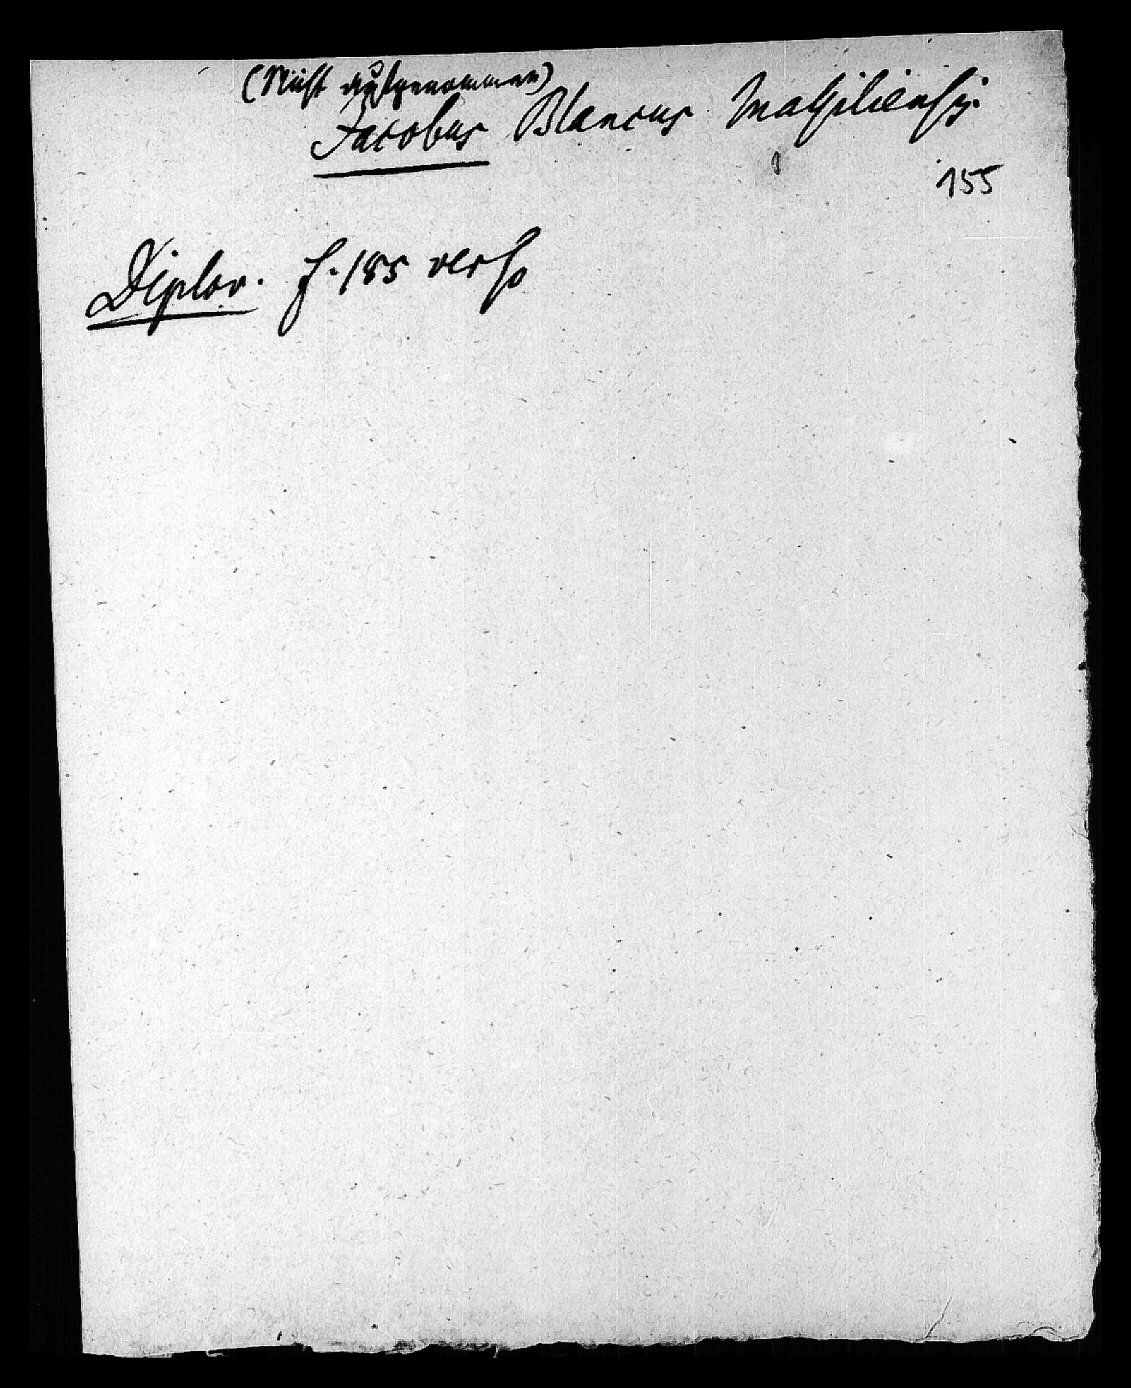 (Nicht aufgenommen)
Jacobus Blancus Massiliensis
155
Diplov. f. 185 verso